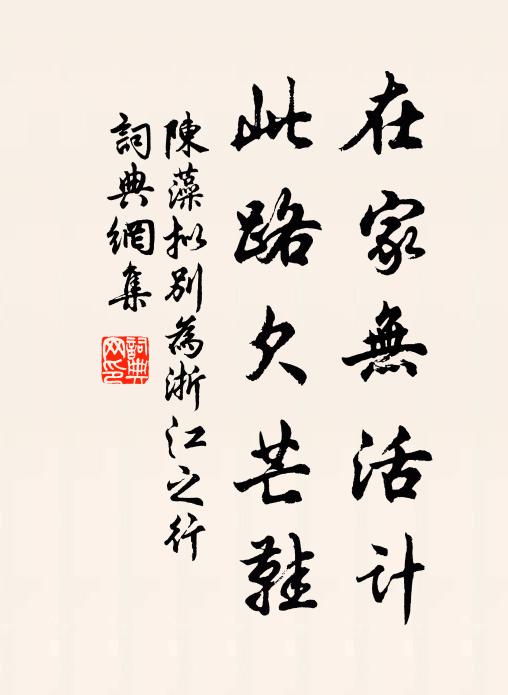 在家無活計
此路欠芒鞋
陳藻拟別為浙江之行
詞典網集
詞典网印